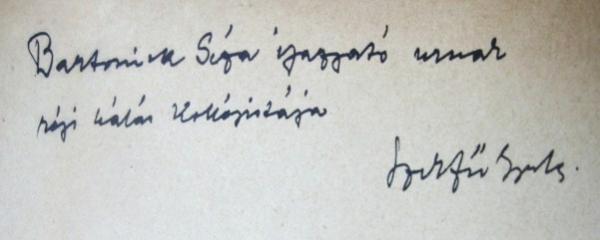 Bartoniek Géza igazgató urnak
régi hálás kollégistája
Szekfű Gyula.